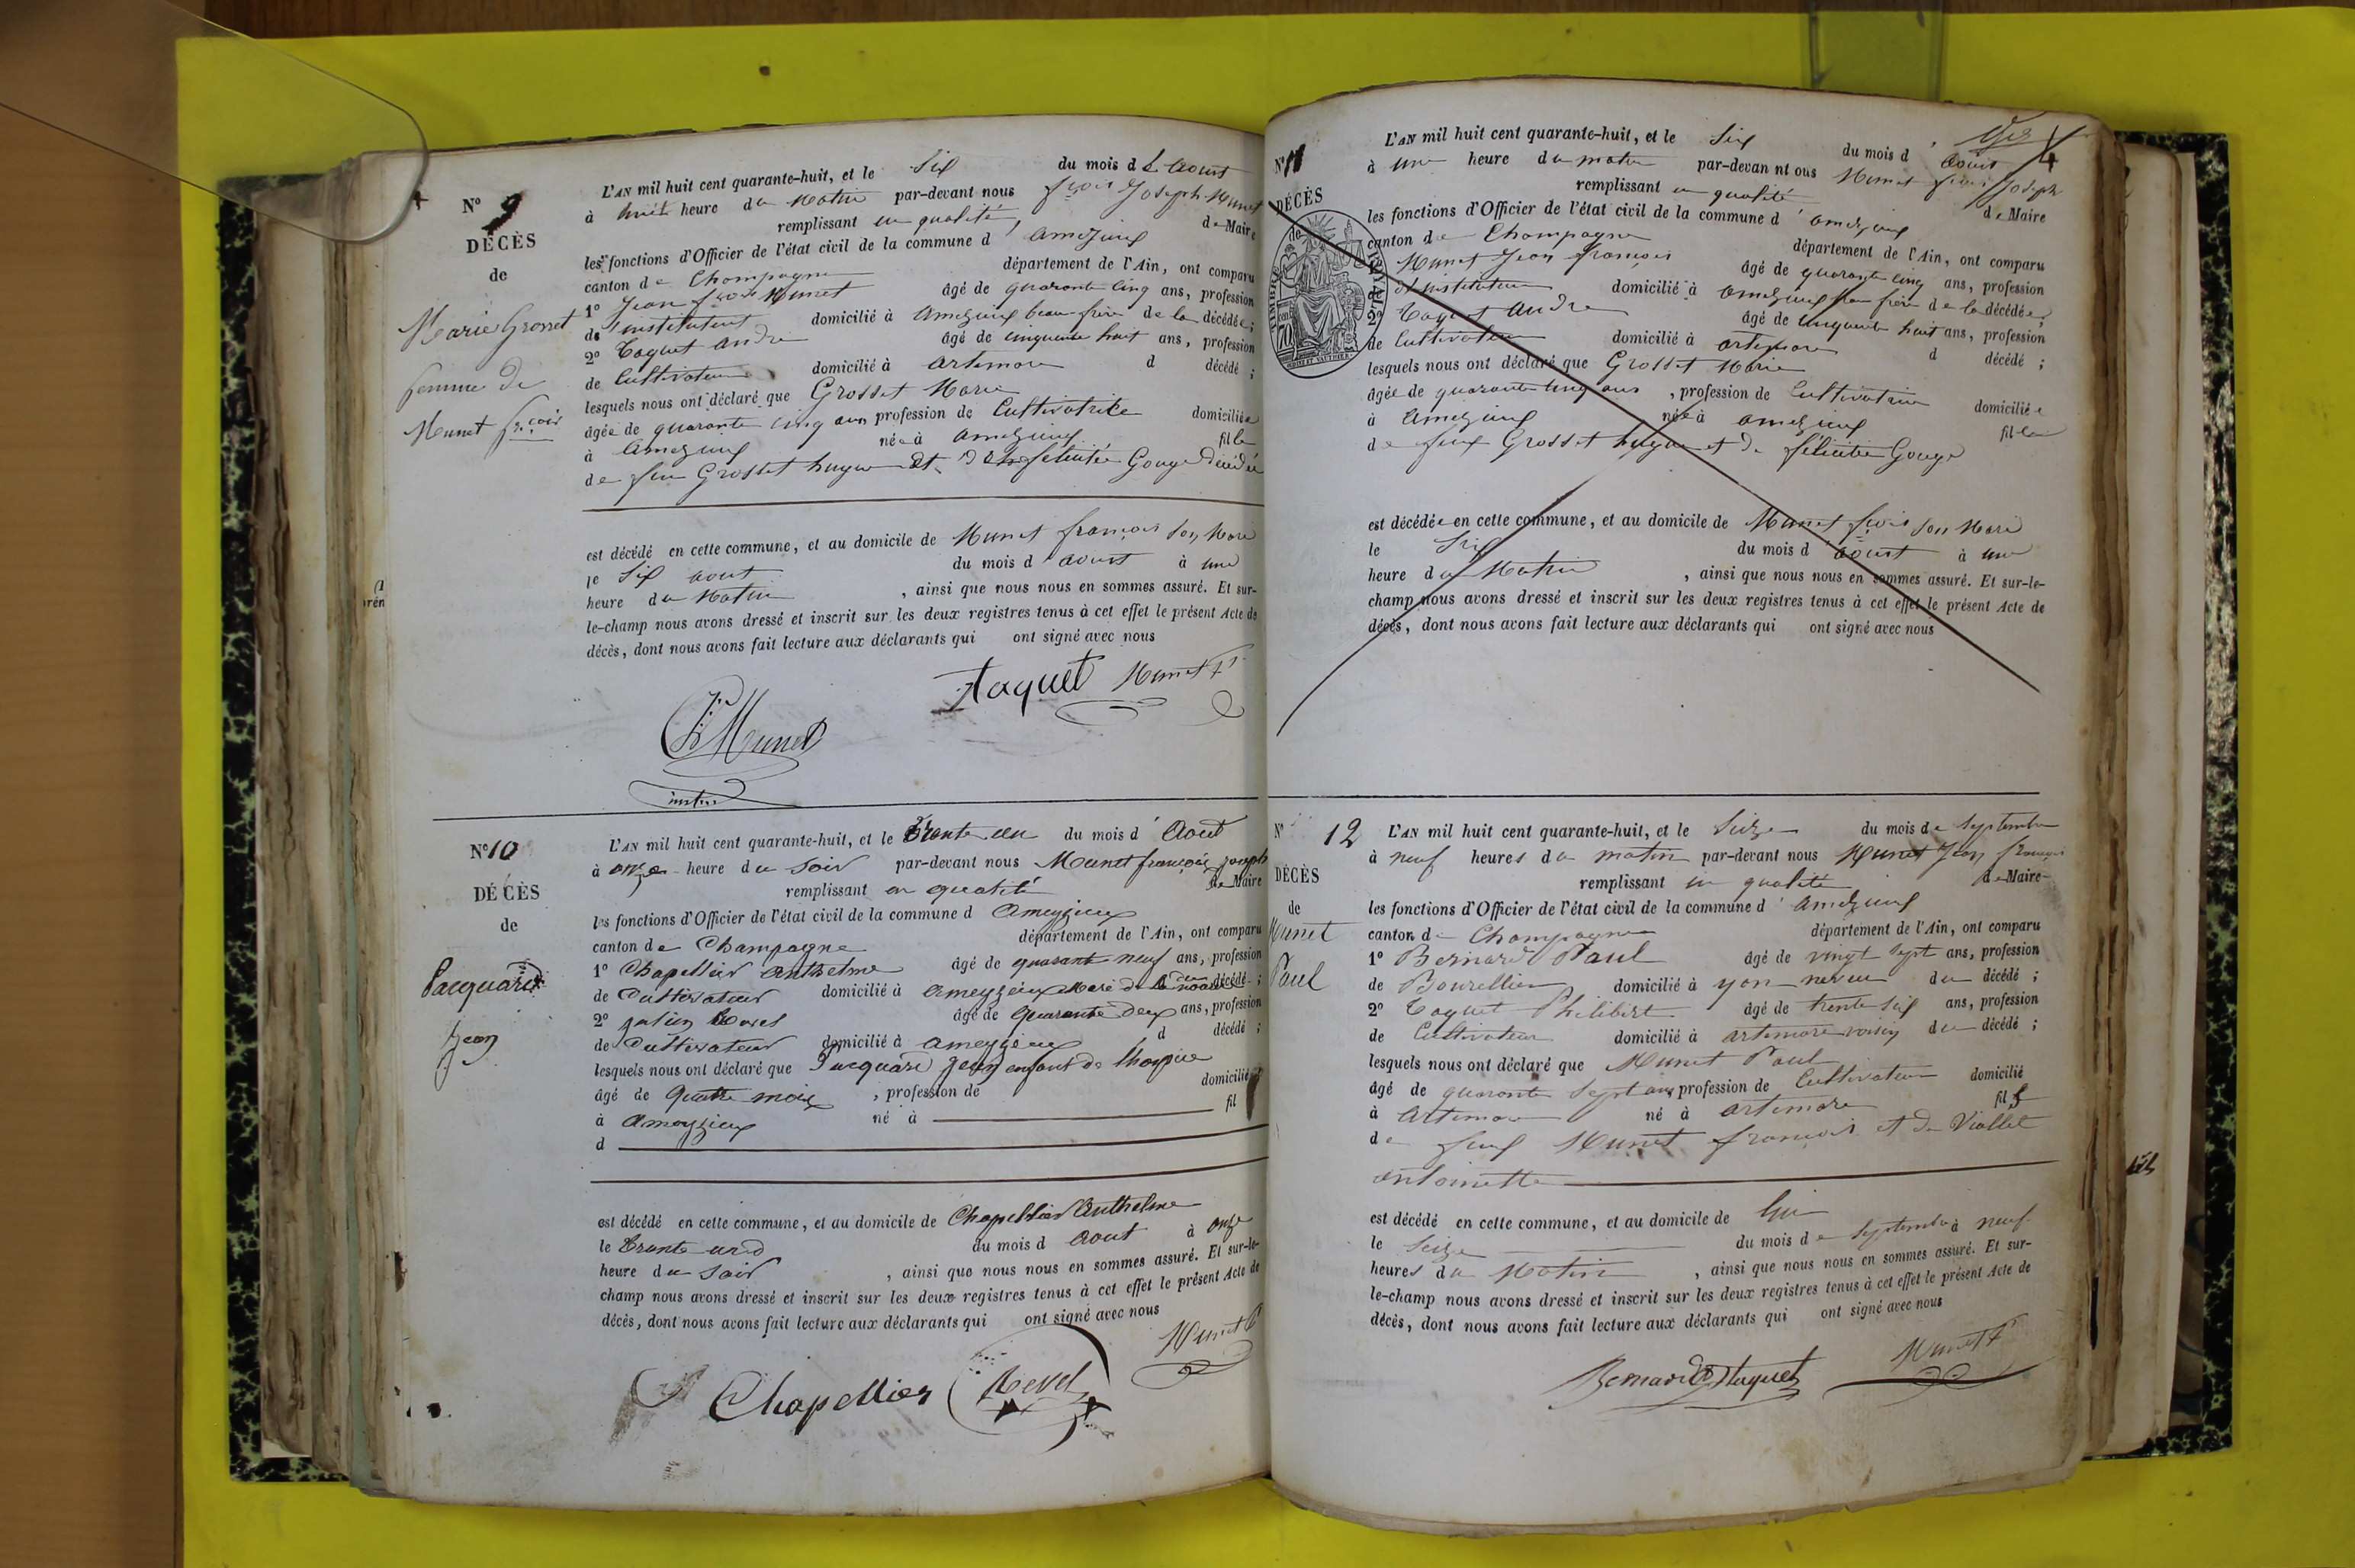 N° 9
DÉCÈS
de
Marie Grosset
femme de
Munet fr.cois
L'AN mil huit cent quarante-huit, et le Six du mois d Aoust
à heure du Matin par-devant nous frois Joseph Munet
remplissant en qualité de Maire
les fonctions d'Officier de l'état civil de la commune d' amezieux
canton de Champagne département de l'Ain, ont comparu
1° Jean frois Munet âgé de quarante cinq ans, profession
de instituteur domicilié à Amezieux beau-frère de la décédée;
2° Taquet andre âgé de cinquante huit ans, profession
de Cultivateur domicilié à artemare d décédé ;
lesquels nous ont déclaré que Grosset Marie
âgée de quarante cinq ans profession de Cultivatrice domiciliée
à Amezieux née à amezieux fille
de feu Grosset hugue et de felicitée Gouge décédée
est décédé en cette commune, et au domicile de Munet françois son Mari
le Six aout du mois d aoust à une
heure du Matin , ainsi que nous nous en sommes assuré. Et sur-
le-champ nous avons dressé et inscrit sur les deux registres tenus à cet effet le présent Acte de
décès, dont nous avons fait lecture aux déclarants qui ont signé avec nous
Taquet Munet f
Munet
instit
N° 10
DÉCÈS
de
Pacquard
Jean
L'AN mil huit cent quarante-huit, et le Trente un du mois d' Aout
à onze heure du soir par-devant nous Munet françois joseph
remplissant en qualité de Maire
les fonctions d'Officier de l'état civil de la commune d Ameyzieux
canton de Champagne département de l'Ain, ont comparu
1° Chapellier Anthelme âgé de quarante neuf ans, profession
de Cultivateur domicilié à Ameyzieux décédé ;
2° julien Revel âgé de Quarante deux ans, profession
de Cultivateur domicilié à ameyzieux d décédé ;
lesquels nous ont déclaré que Pacquard Jean enfant de l'hospice
âgé de Quatre mois , profession de domicilié
à Ameyzieux né à fil
d
est décédé en cette commune, et au domicile de Chapellier Anthelme
le Trente und du mois d Aout à onze
heure du soir , ainsi que nous nous en sommes assuré. Et sur-le-
champ nous avons dressé et inscrit sur les deux registres tenus à cet effet le présent Acte de
décès, dont nous avons fait lecture aux déclarants qui ont signé avec nous
Chapellier Revel Munet f
N° 11
DÉCÈS
de
L'AN mil huit cent quarante-huit, et le Six du mois d' Aout
à une heure du matin par-devan nt ous Munet frois Joseph
remplissant en qualité de Maire
les fonctions d'Officier de l'état civil de la commune d' amezieux
canton de Champagne département de l'Ain, ont comparu
Munet Jean françois âgé de quarante cinq ans, profession
d'instituteur domicilié à amezieux beau frère de la décédée;
2° Taquet andre âgé de cinquante huit ans, profession
de Cultivateur domicilié à artemare d décédé ;
lesquels nous ont déclaré que Grosset Marie
âgée de quarante cinq ans , profession de Cultivatrice domiciliée
à Amezieux née à amezieux fille
de feu Grosset hugue et de félicitée Gouge
est décédée en cette commune, et au domicile de Munet frois son Mari
le Six du mois d' aoust à une
heure du Matin , ainsi que nous nous en sommes assuré. Et sur-le-
champ nous avons dressé et inscrit sur les deux registres tenus à cet effet le présent Acte de
décès, dont nous avons fait lecture aux déclarants qui ont signé avec nous
N° 12
DÉCÈS
de
Munet
Paul
L'AN mil huit cent quarante-huit, et le Seize du mois de Septembre
à neuf heures du matin par-devant nous Munet Jean françois
remplissant en qualité de Maire
les fonctions d'Officier de l'état civil de la commune d' amezieux
canton de Champagne département de l'Ain, ont comparu
1° Bernard Paul âgé de vingt sept ans, profession
de Bourellier domicilié à yon neveu du décédé ;
2° Taquet Philibert âgé de trente six ans, profession
de Cultivateur domicilié à artemare voisin du décédé ;
lesquels nous ont déclaré que Munet Paul
âgé de quarante sept ans, profession de Cultivateur domicilié
à Artemare né à artemare fils
de feu Munet françois et de Viollet
antoinette
est décédé en cette commune, et au domicile de lui
le Seize du mois de Septembre à neuf
heures du Matin , ainsi que nous nous en sommes assuré. Et sur-
le-champ nous avons dressé et inscrit sur les deux registres tenus à cet effet le présent Acte de
décès, dont nous avons fait lecture aux déclarants qui ont signé avec nous
Bernard Taquet Munet f